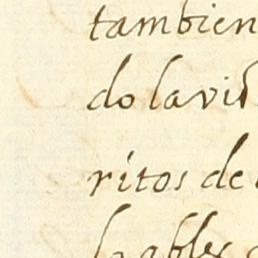 tambien
do la vis
ritos de